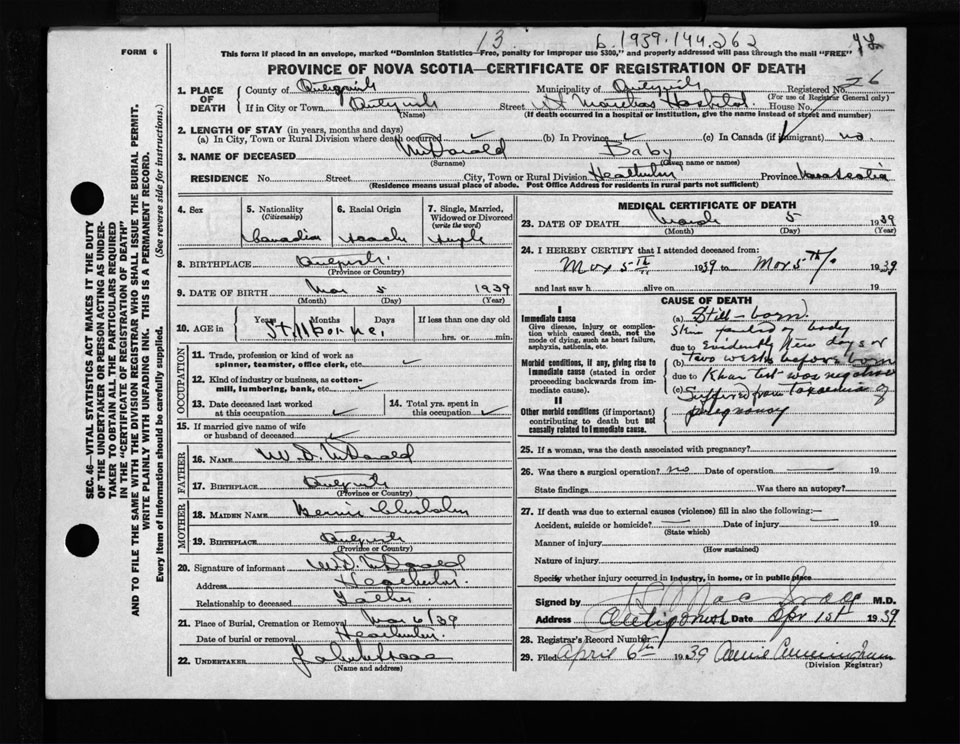 13
b. 1939.144.262
FORM 6
This form if placed in an envelope, marked "Dominion Statistics—Free, penalty for improper use $300," and properly addressed will pass through the mail "FREE"
PROVINCE OF NOVA SCOTIA—CERTIFICATE OF REGISTRATION OF DEATH
1. PLACE OF DEATH
County of Antigonish Municipality of Antigonish Registered No. 26
(For use of Registrar General only)
If in City or Town Antigonish Street St Marthas Hospital House No.
(Name) (If death occurred in a hospital or institution, give the name instead of street and number)
2. LENGTH OF STAY (in years, months and days)
(a) In City, Town or Rural Division where death occurred (b) In Province (c) In Canada (if immigrant) no.
3. NAME OF DECEASED McDonald Baby
(Surname) (Given name or names)
RESIDENCE No. Street City, Town or Rural Division Heatherton Province Nova Scotia
(Residence means usual place of abode. Post Office Address for residents in rural parts not sufficient)
4. Sex
5. Nationality (Citizenship) Canadian
6. Racial Origin
7. Single, Married, Widowed or Divorced (write the word) Single
8. BIRTHPLACE Antigonish
(Province or Country)
9. DATE OF BIRTH Mar 5 1939
(Month) (Day) (Year)
10. AGE in Years Months Days If less than one day old
Stillborne. hrs. or min.
OCCUPATION
11. Trade, profession or kind of work as spinner, teamster, office clerk, etc.
12. Kind of industry or business, as cotton-mill, lumbering, bank, etc.
13. Date deceased last worked at this occupation
14. Total yrs. spent in this occupation
15. If married give name of wife or husband of deceased
FATHER
16. NAME W. D. McDonald
17. BIRTHPLACE Antigonish
(Province or Country)
MOTHER
18. MAIDEN NAME Chisholm
19. BIRTHPLACE Antigonish
(Province or Country)
20. Signature of informant W. D. McDonald
Address Heatherton.
Relationship to deceased Father
21. Place of Burial, Cremation or Removal Mar 6/39
Date of burial or removal Heatherton
22. UNDERTAKER
(Name and address)
MEDICAL CERTIFICATE OF DEATH
23. DATE OF DEATH March 5 1939
(Month) (Day) (Year)
24. I HEREBY CERTIFY that I attended deceased from:
Mar 5th 1939 to Mar 5th 1939
and last saw h alive on 19
CAUSE OF DEATH
I
Immediate cause
Give disease, injury or complication which caused death, not the mode of dying, such as heart failure, asphyxia, asthenia, etc.
Morbid conditions, if any, giving rise to immediate cause (stated in order proceeding backwards from immediate cause).
II
Other morbid conditions (if important) contributing to death but not causally related to immediate cause.
(a) Still-born.
Skin peeled of body
due to evidently few days or
(b) Two weeks before born
due to Khan test was negative
(c) Suffered from Toxaemia of
pregnancy
25. If a woman, was the death associated with pregnancy?
26. Was there a surgical operation? no Date of operation 19
State findings Was there an autopsy?
27. If death was due to external causes (violence) fill in also the following:—
Accident, suicide or homicide? Date of injury 19
(State which)
Manner of injury
(How sustained)
Nature of injury
Specify whether injury occurred in industry, in home, or in public place
Signed by M.D.
Address Antigonish Date Apr 1st 1939
28. Registrar's Record Number
29. Filed April 6th 1939 Annie Cunningham
(Division Registrar)
SEC. 46—VITAL STATISTICS ACT MAKES IT THE DUTY
OF THE UNDERTAKER OR PERSON ACTING AS UNDER-
TAKER TO OBTAIN ALL THE PARTICULARS REQUIRED
IN THE "CERTIFICATE OF REGISTRATION OF DEATH"
AND TO FILE THE SAME WITH THE DIVISION REGISTRAR WHO SHALL ISSUE THE BURIAL PERMIT.
WRITE PLAINLY WITH UNFADING INK. THIS IS A PERMANENT RECORD.
Every item of information should be carefully supplied. (See reverse side for instructions.)